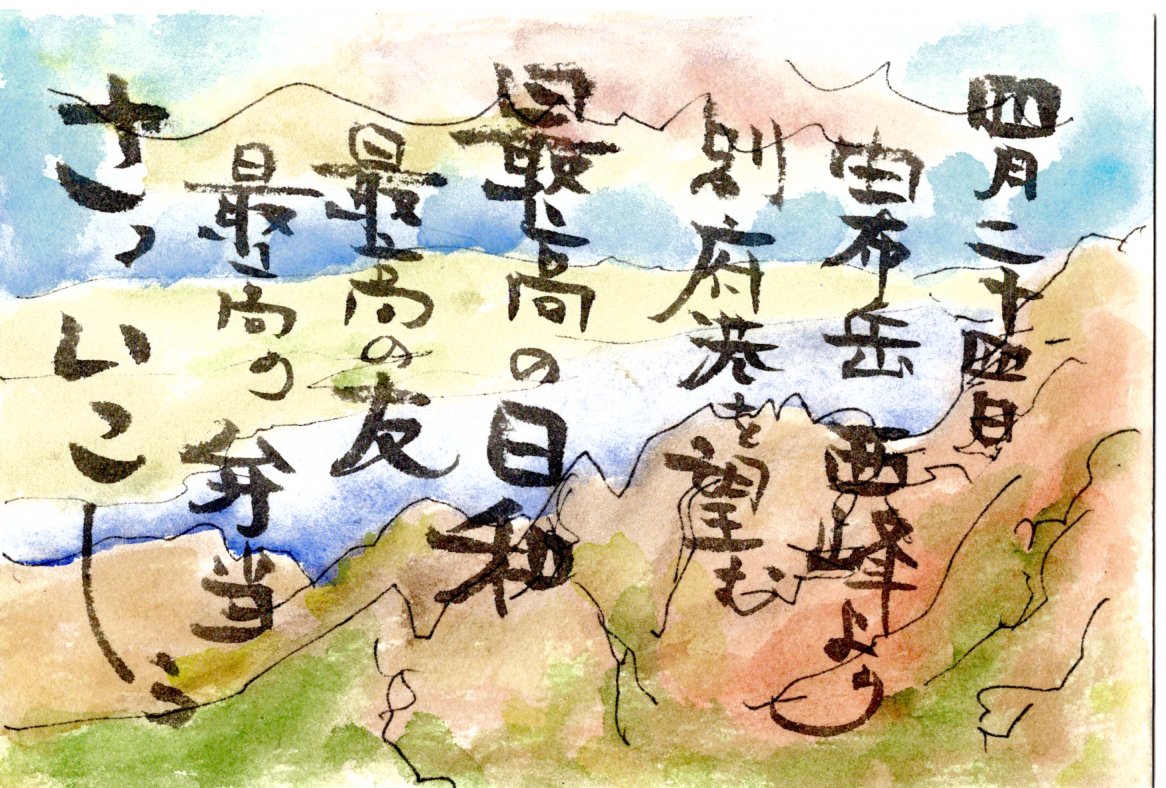 四月二十四日
由布岳 西峰より
別府港を望む
最高の日和
最高の友
最高の弁当
さっいこーう